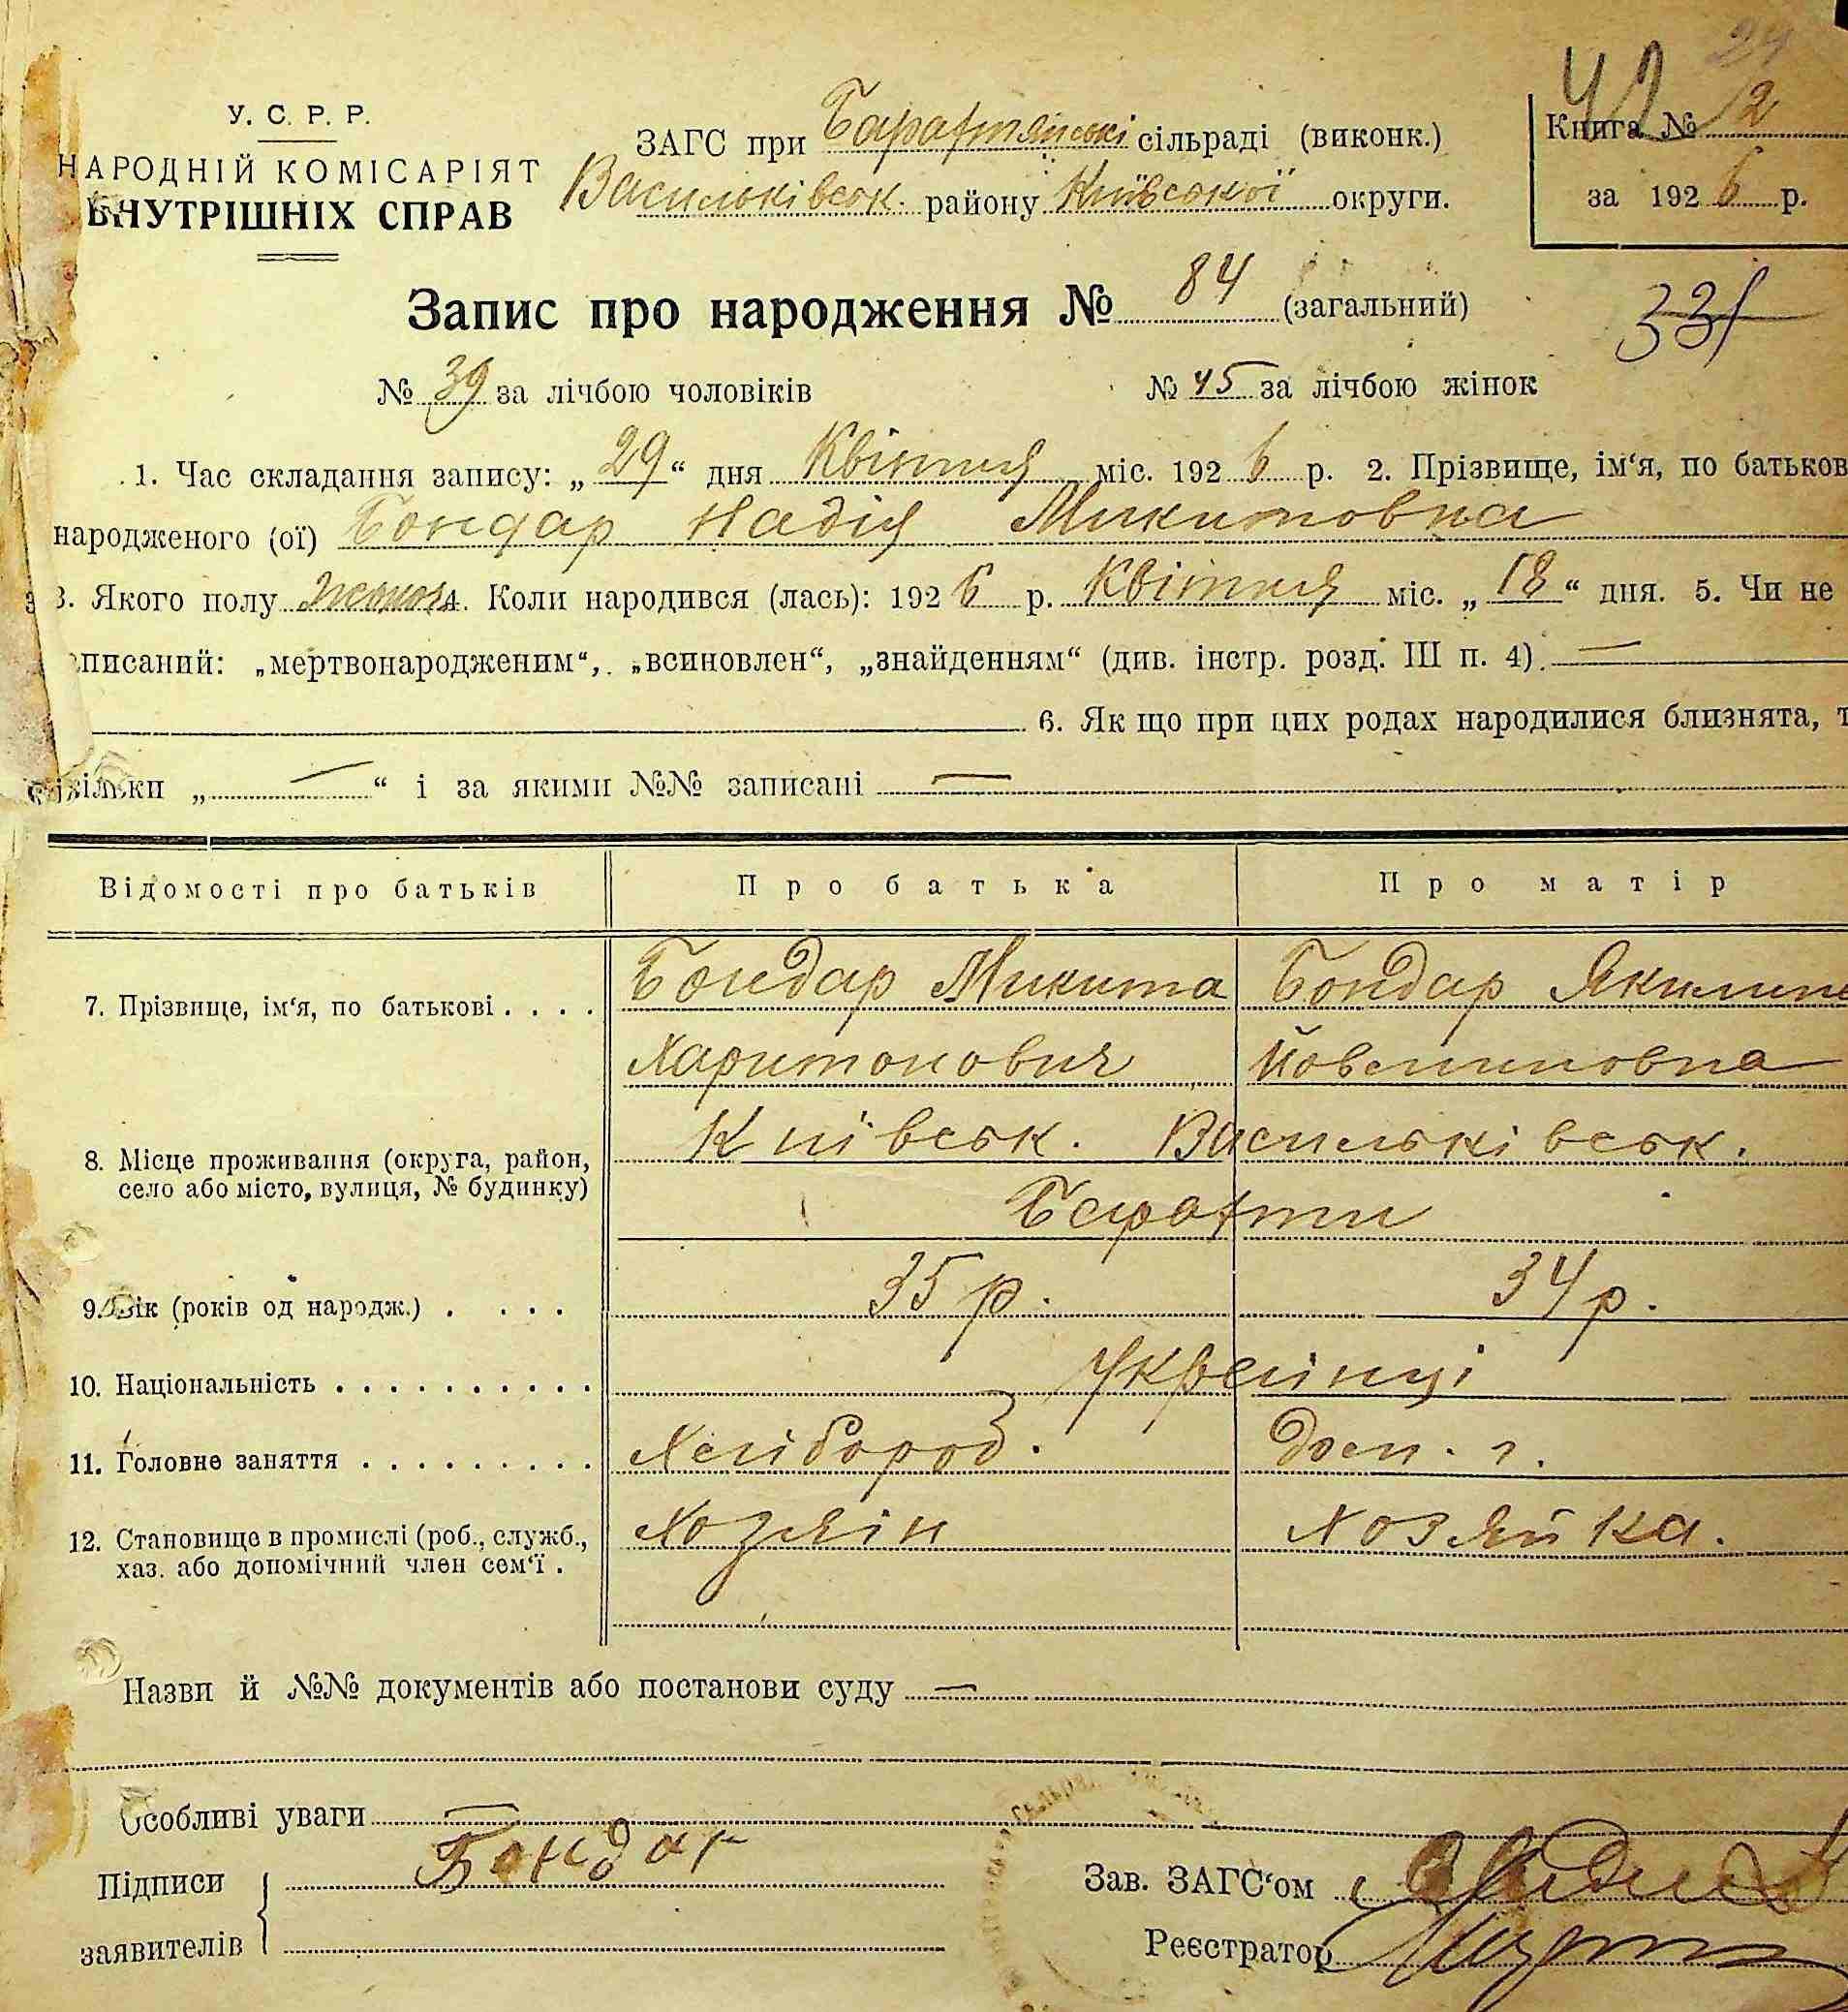 24
42
У. С. Р. Р.
НАРОДНІЙ КОМІСАРІЯТ
ВНУТРІШНІХ СПРАВ
ЗАГС при Барахтянські сільраді (виконк.)
Васильківськ. району Київської округи.
Книга № 2
за 1926 р.
Запис про народження № 84 (загальний)
331
№ 39 за лічбою чоловіків № 45 за лічбою жінок
1. Час складання запису: „29“ дня Квітня міс. 1926 р. 2. Прізвище, ім‘я, по батьков
народженого (ої) Бондар Надія Микитовна
3. Якого полу жіноч. 4. Коли народився (лась): 1926 р. Квітня міс. „18“ дня. 5. Чи не
писаний: „мертвонародженим“, „всиновлен“, „знайденням“ (див. інстр. розд. III п. 4). —
6. Як що при цих родах народилися близнята, т
скільки „ — “ і за якими №№ записані —
Відомості про батьків Про батька Про матір
7. Прізвище, ім‘я, по батькові . . . . Бондар Микита Бондар Якилина
Харитонович
8. Місце проживання (округа, район, село або місто, вулиця, № будинку) Київськ. Васильківськ.
Барахти
9. Вік (років од народж.) . . . . 35 р. 34 р.
10. Національність . . . . . . . . . . Українці
11. Головне заняття . . . . . . . . . Хлібороб. Дом. г.
12. Становище в промислі (роб., служб., хаз. або допомічний член сем‘ї . Хозяін Хозяйка.
Назви й №№ документів або постанови суду —
Особливі уваги —
Підписи заявителів Бондар
Зав. ЗАГС‘ом
Реєстратор